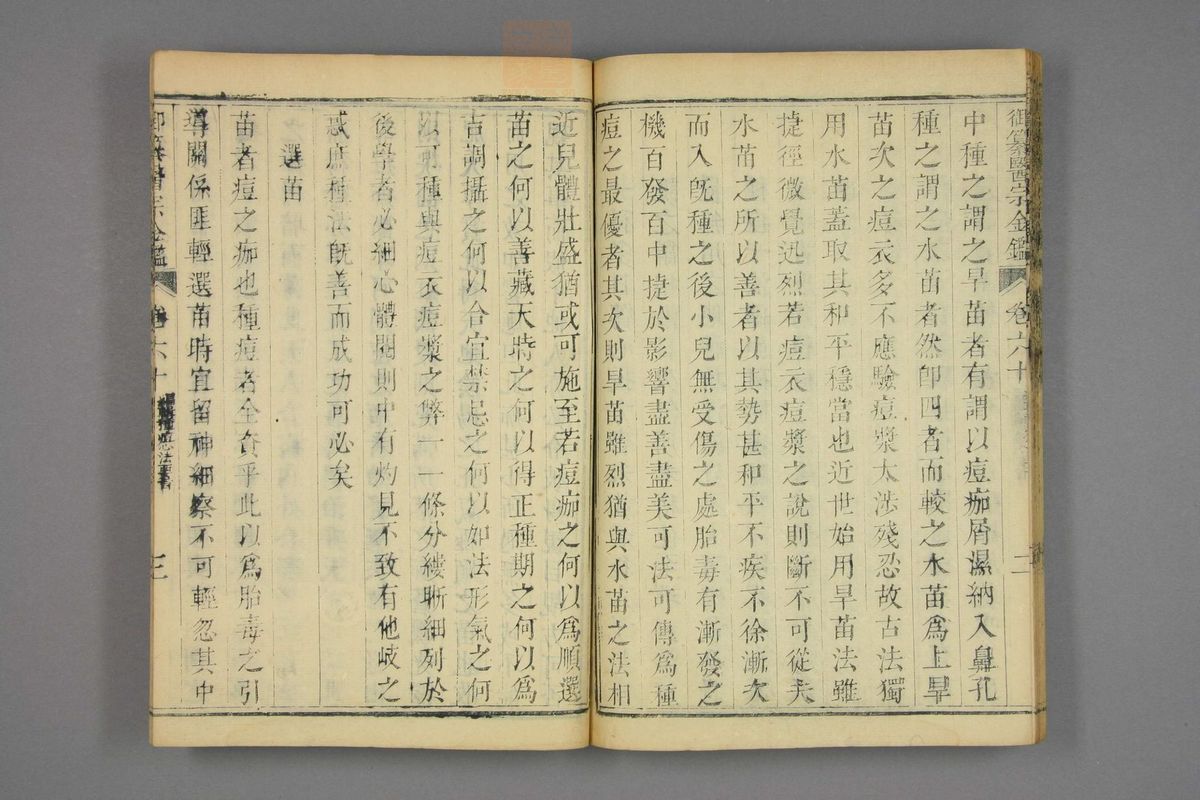 御纂醫宗金鑑 卷六十 二
中種之謂之旱苗者有謂以痘痂屑濕納入鼻孔
種之謂之水苗者然即四者而較之水苗爲上旱
苗次之痘衣多不應驗痘漿太涉殘忍故古法獨
用水苗蓋取其和平穩當也近世始用旱苗法雖
捷徑微覺迅烈若痘衣痘漿之說則斷不可從夫
水苗之所以善者以其勢甚和平不疾不徐漸次
而入旣種之後小兒無受傷之處胎毒有漸發之
機百發百中捷於影響盡善盡美可法可傳爲種
痘之最優者其次則旱苗雖烈猶與水苗之法相
近兒體壯盛猶或可施至若痘痂之何以爲順選
苗之何以善藏天時之何以得正種期之何以爲
吉調攝之何以合宜禁忌之何以如法形氣之何
以可種與痘衣痘漿之弊一一條分縷晰細列於
後學者必細心體閱則中有灼見不致有他岐之
惑庶種法旣善而成功可必矣
選苗
苗者痘之痂也種痘者全資乎此以爲胎毒之引
導關係匪輕選苗時宜留神細察不可輕忽其中
御纂醫宗金鑑 卷六十 種痘心法要旨 三